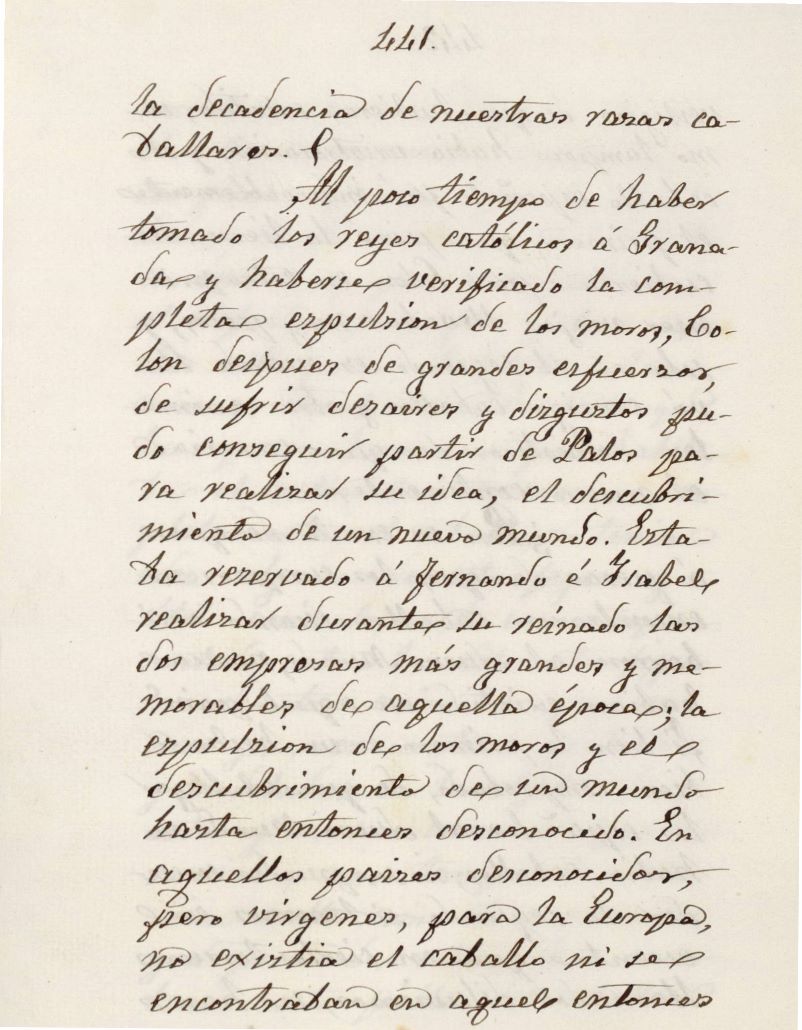 441.
la decadencia de nuestras razas ca-
ballares.
Al poco tiempo de haber
tomado los reyes católicos á Grana-
da y haberse verificado la com-
pleta espulsion de los moros, Co-
lon despues de grandes esfuerzos,
de sufrir desaires y disgustos pu-
do conseguir partir de Palos pa-
ra realizar su idea, el descubri-
miento de un nuevo mundo. Esta-
ba reservado á Fernando é Isabel
realizar durante su reinado las
dos empresas más grandes y me-
morables de aquella época; la
espulsion de los moros y el
descubrimiento de un mundo
hasta entonces desconocido. En
aquellos paises desconocidos,
pero virgenes, para la Europa,
no existia el caballo ni se
encontraban en aquel entonces